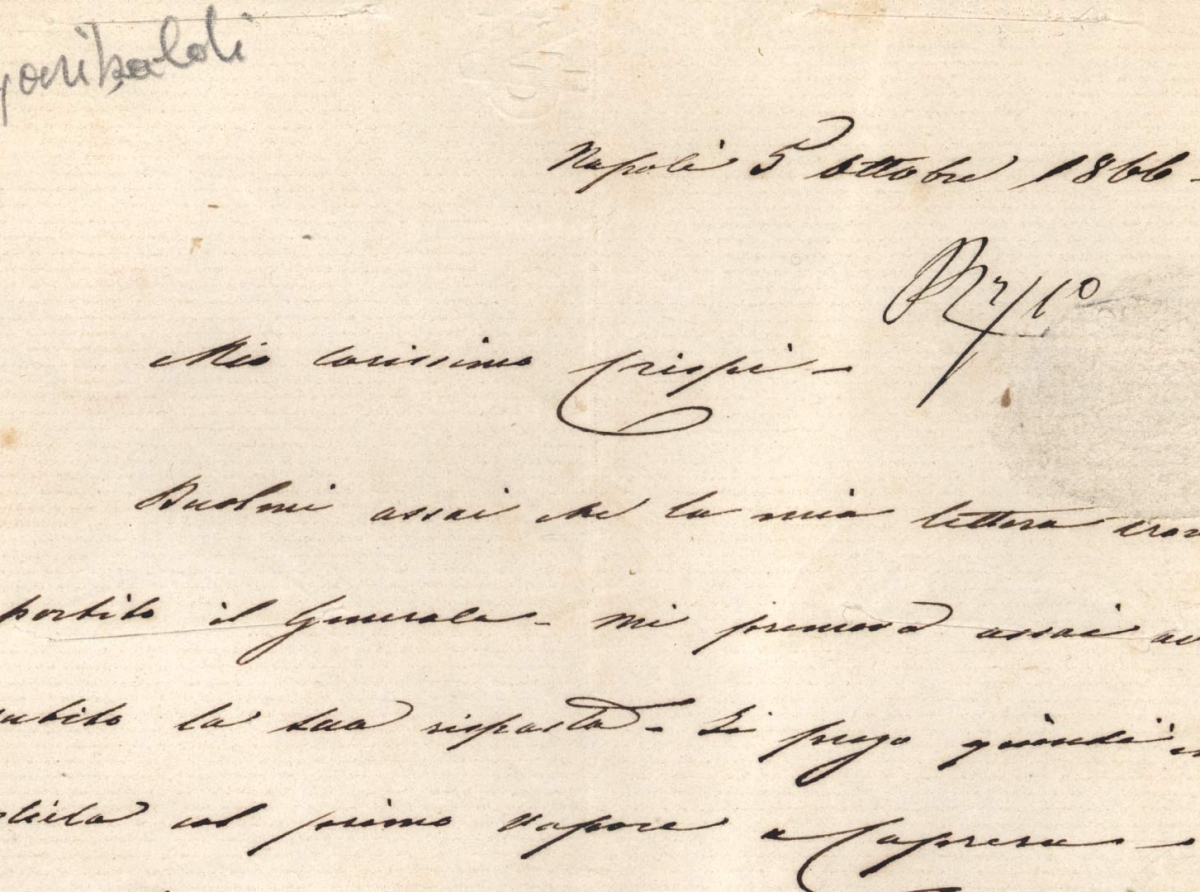 Garibaldi
Napoli 5 Ottobre 1866 -
Mio carissimo Crispi -
Duolmi assai che la mia lettera
partito il Generale - mi premeva assai
subito la sua risposta - Ti prego quindi
col primo vapore a Caprera -